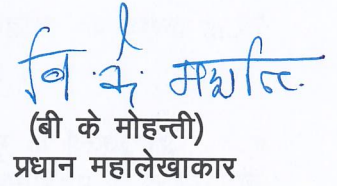 बि.के. मोहान्ति.
(बी के मोहन्ती)
प्रधान महालेखाकार